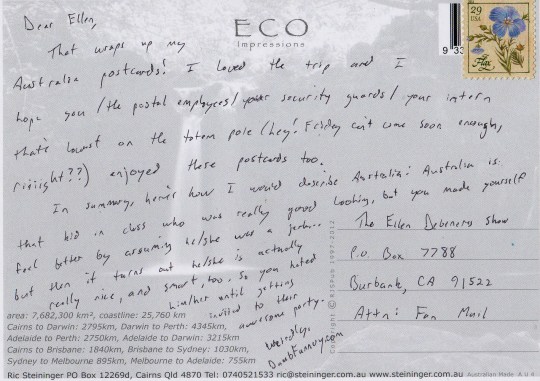 Dear Ellen,
ECO
Impressions
29
USA
Flax
9 33
That wraps up my
Australia postcards! I loved the trip and I
hope you / the postal employees / your security guards / your intern
that's lowest on the totem pole (hey! Friday can't come soon enough,
riiiight??) enjoyed these postcards too.
In summary, here's how I would describe Australia: Australia is
that kid in class who was really good looking, but you made yourself
feel better by assuming he/she was a jerk...
but then it turns out he/she is actually
really nice, and smart, too. So you hated
him/her until getting
invited to their
awesome party.
Weirdly,
DumbFunnery.com
The Ellen Degeneres Show
P.O. Box 7788
Burbank, CA 91522
Attn: Fan Mail
area: 7,682,300 km², coastline: 25,760 km
Cairns to Darwin: 2795km, Darwin to Perth: 4345km,
Adelaide to Perth: 2750km, Adelaide to Darwin: 3215km
Cairns to Brisbane: 1840km, Brisbane to Sydney: 1030km,
Sydney to Melbourne 895km, Melbourne to Adelaide: 755km
Ric Steininger PO Box 12269d, Cairns Qld 4870 Tel: 0740521533 ric@steininger.com.au www.steininger.com.au Australian Made
Copyright © RISPub 1997-2012